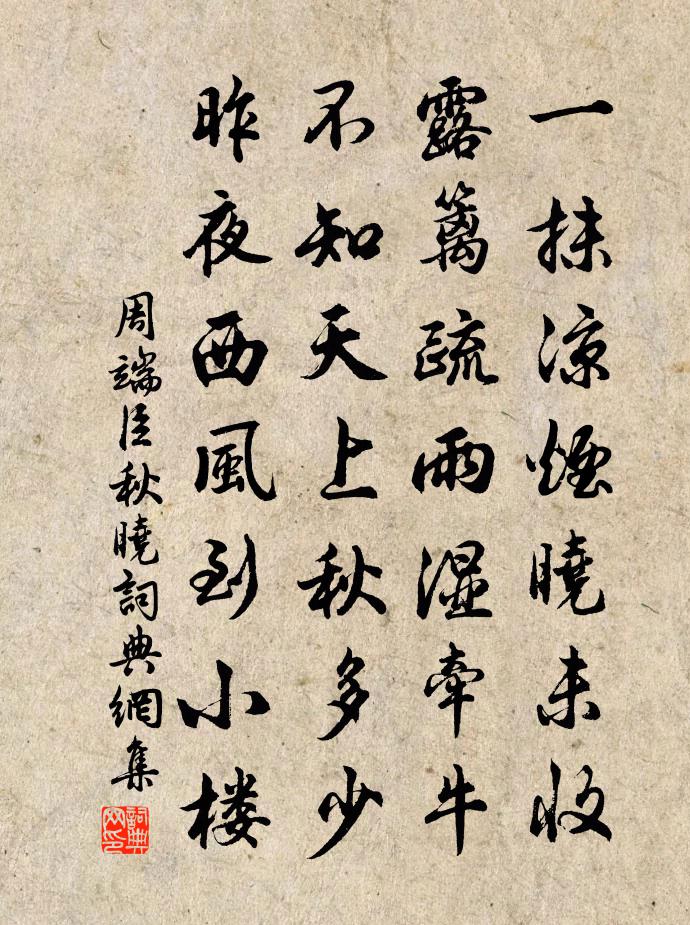 一抹涼煙曉未收
露籬疏雨濕牽牛
不知天上秋多少
昨夜西風到小楼
周端臣秋曉詞典網集
詞典网印